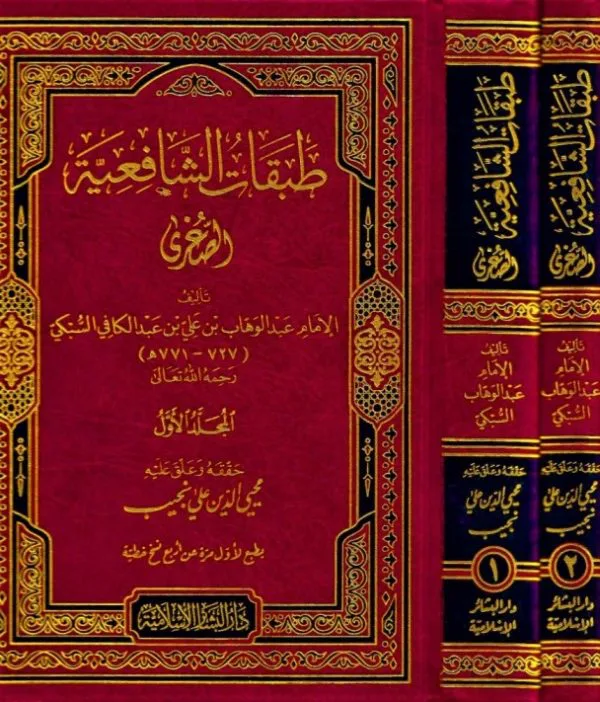 طَبَقَاتُ الشَّافِعِيَّة
الصُّغْرَى
تَأليفُ
الإمَامِ عَبْدِ الوَهَّابِ بْنِ عَلِيّ بْنِ عَبْدِ الكَافِي السُّبْكِيّ
(٧٢٧ - ٧٧١ هـ)
رَحِمَهُ اللهُ تَعَالَىٰ
المُجَلَّدُ الأَوَّلُ
حَقَّقَهُ وَعَلَّقَ عَلَيْهِ
محيي الدين علي نجيب
يطبع لأول مرة عن أربع نسخ خطية
دَارُ البَشَائِر الإِسْلَامِيَّة
طَبَقَاتُ الشَّافِعِيَّة
الصُّغْرَى
تأليف
الإمام
عبد الوهاب
السُّبكيّ
حققه وعلق عليه
محيي الدين علي
نجيب
١
دار البشائر
الإسلامية
طَبَقَاتُ الشَّافِعِيَّة
الصُّغْرَى
تأليف
الإمام
عبد الوهاب
السُّبكيّ
حققه وعلق عليه
محيي الدين علي
نجيب
٢
دار البشائر
الإسلامية